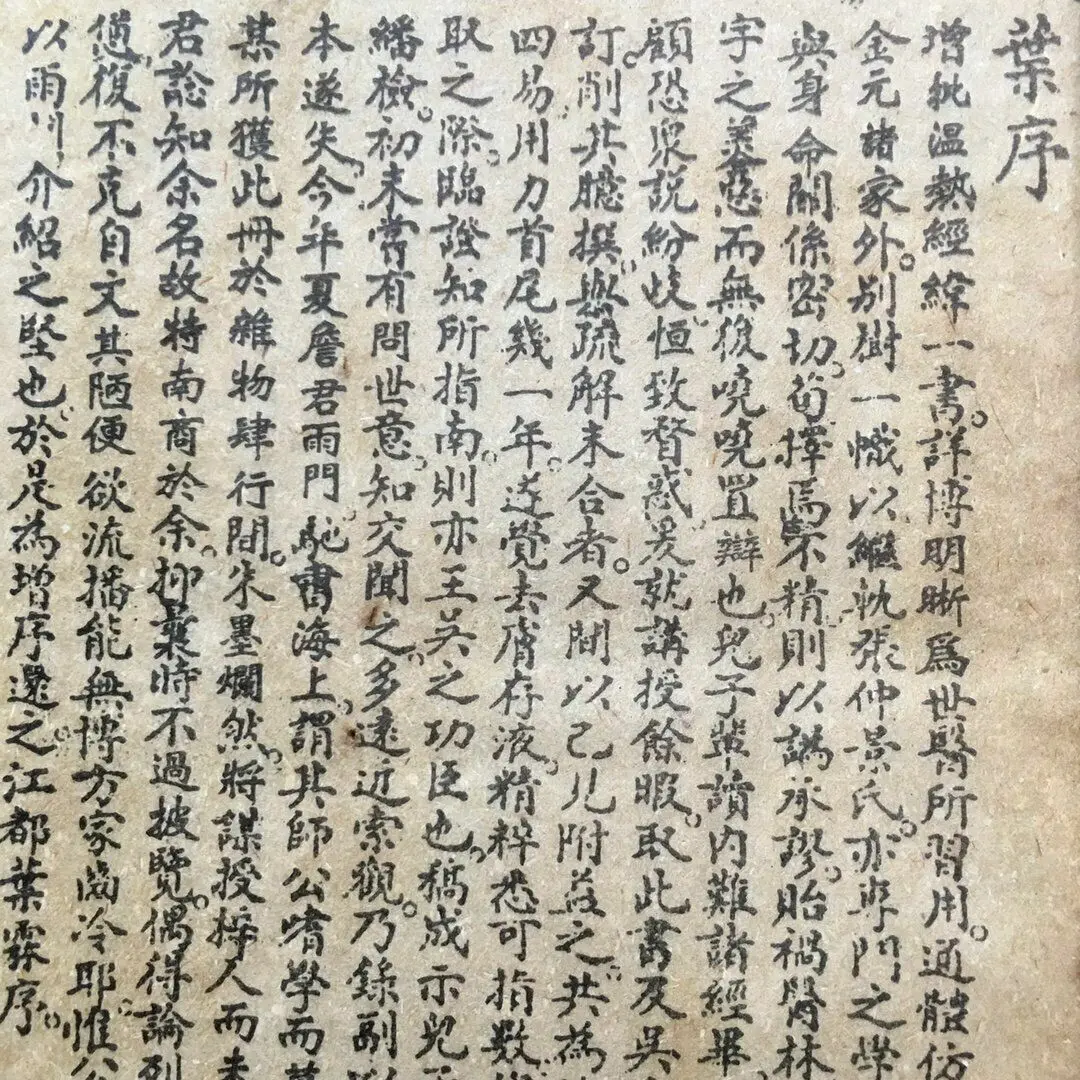 葉序
增批溫熱經緯一書。詳博明晰爲世醫所習用。通體仿
金元諸家外。別樹一幟以繼軌張仲景氏。亦專門之學
與身命關係密切。苟擇焉不精則以譌承謬。貽禍醫林
字之善惡而無後嘵嘵置辯也。兒子輩讀內難諸經畢
顧恐衆說紛歧。恒致瞀惑。爰就講授餘暇。取此書及吳
訂。削其臆撰與疏解未合者。又間以己見附益之。共爲
四易。用力首尾幾一年。遂覺去膚存液。精粹悉可指數
取之際。臨證知所指南。則亦王吳之功臣也。稿成示兒
繙檢。初未嘗有問世意。知交聞之。多遠近索觀。乃錄副
本遂失。今年夏詹君雨門。馳書海上。謂其師公嗜學而
某所獲此冊於雜物肆行間。朱墨爛然。將謀授梓人而未
君諗知余名。故特南商於余。抑曩時不過披覽。偶得論列
徇復不克自文其陋。便欲流播。能無博方家齒冷耶。惟
以雨門介紹之堅也。於是為增序還之。江都葉霖序。